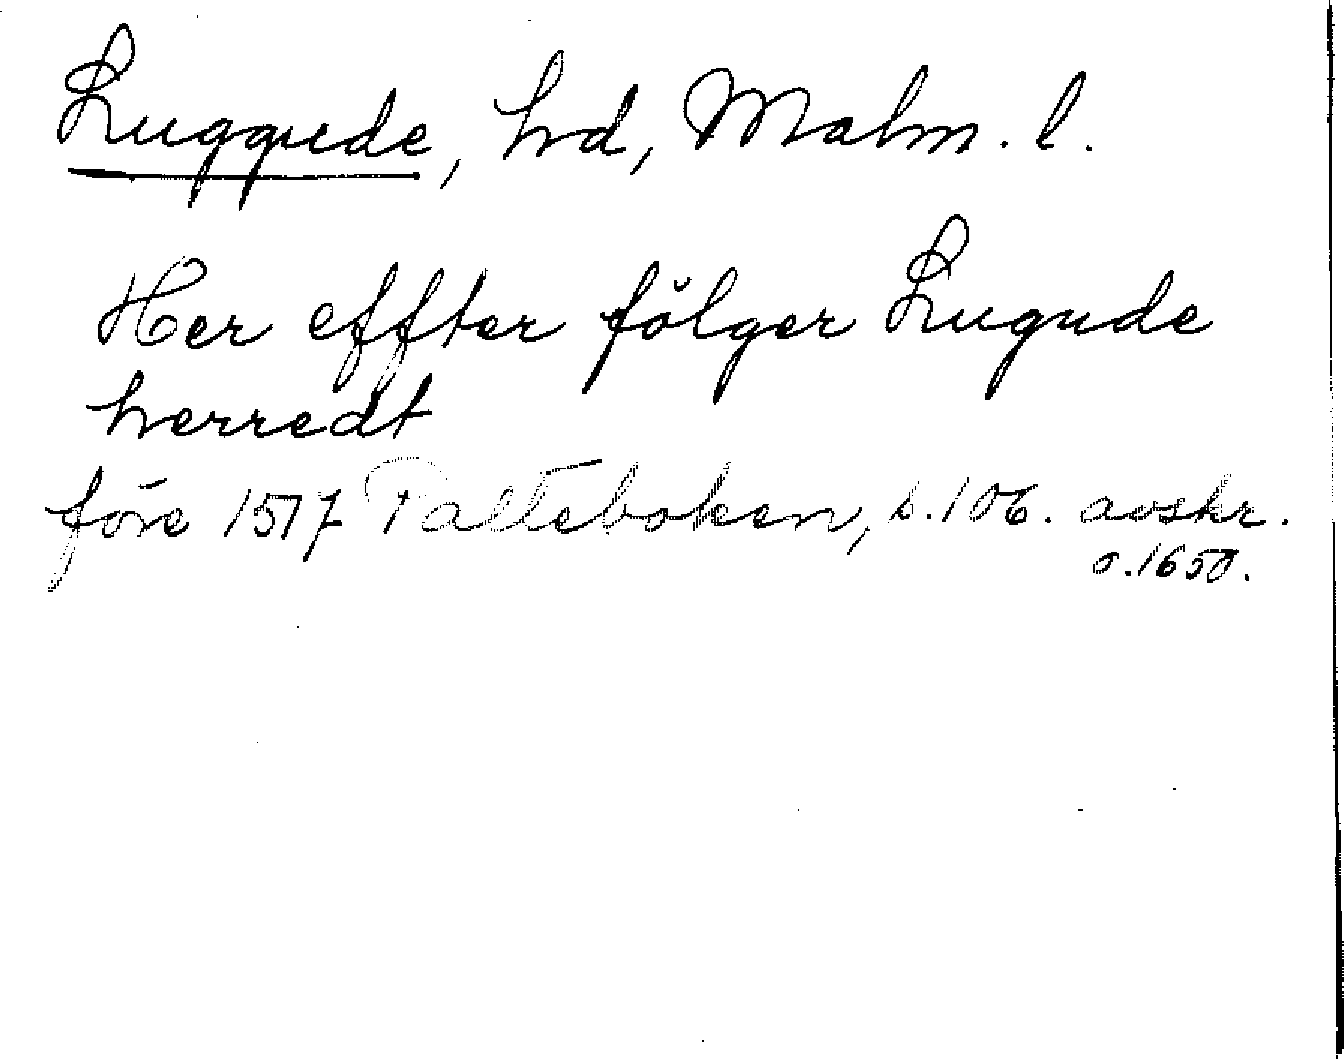 Luggude, hd, Malm. l.
Her effter fölger Lugude
herredt
före 1517 Palteboken, s. 106. avskr.
o. 1650.